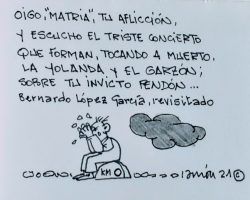 OIGO, "MATRIA", TU AFLICCIÓN,
Y ESCUCHO EL TRISTE CONCIERTO
QUE FORMAN, TOCANDO A MUERTO,
LA YOLANDA Y EL GARZÓN;
SOBRE TU INVICTO PENDÓN...
Bernardo López García, revisitado
KM 0
21 ©